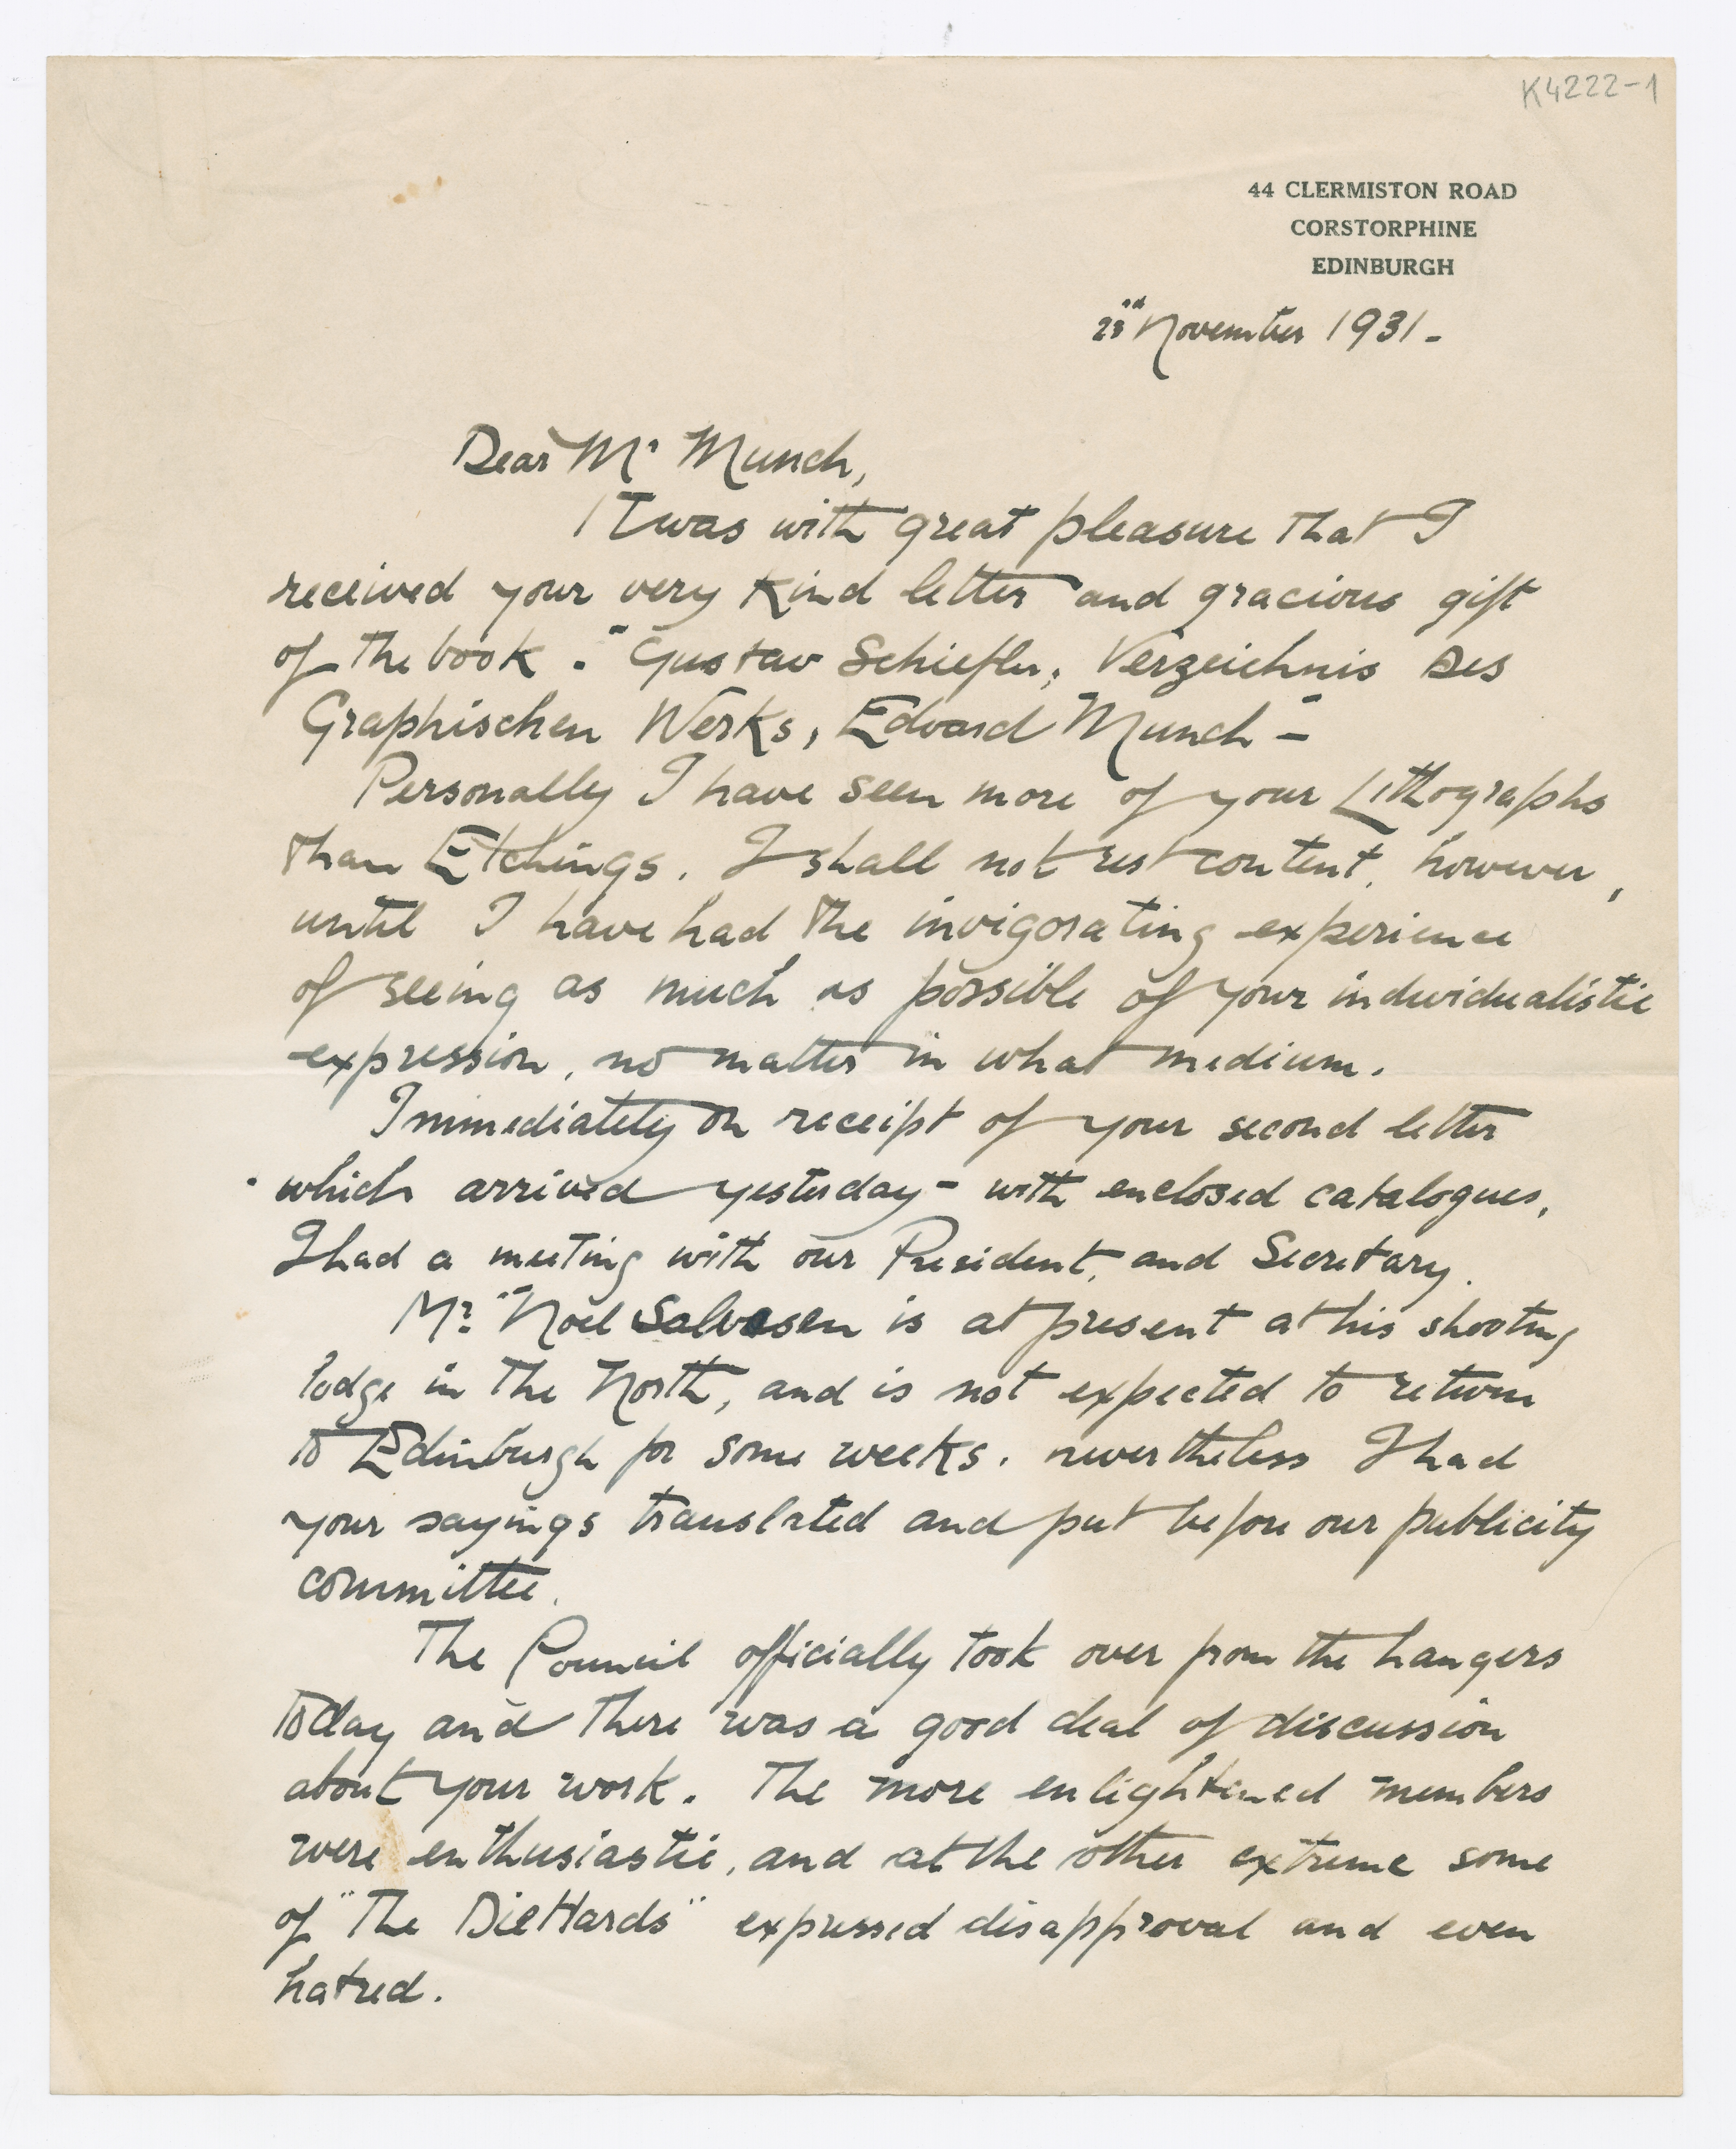 K4222-1
44 CLERMISTON ROAD
CORSTORPHINE
EDINBURGH
23rd November 1931 -
Dear Mr Munch,
It was with great pleasure that I
received your very kind letter and gracious gift
of the book. "Gustav Schiefler; Verzeichnis Des
Graphischen Werks, Edvard Munch" -
Personally I have seen more of your Lithographs
than Etchings. I shall not rest content, however,
until I have had the invigorating experience
of seeing as much as possible of your individualistic
expression, no matter in what medium.
Immediately on receipt of your second letter
which arrived yesterday - with enclosed catalogues,
I had a meeting with our President, and Secretary.
Mr. Noël Salvesen is at present at his shooting
lodge in the North, and is not expected to return
to Edinburgh for some weeks. nevertheless I had
your sayings translated and put before our publicity
committee.
The Council officially took over from the hangers
today and there was a good deal of discussion
about your work. The more enlightened members
were enthusiastic, and at the other extreme some
of "The DieHards" expressed disapproval and even
hatred.